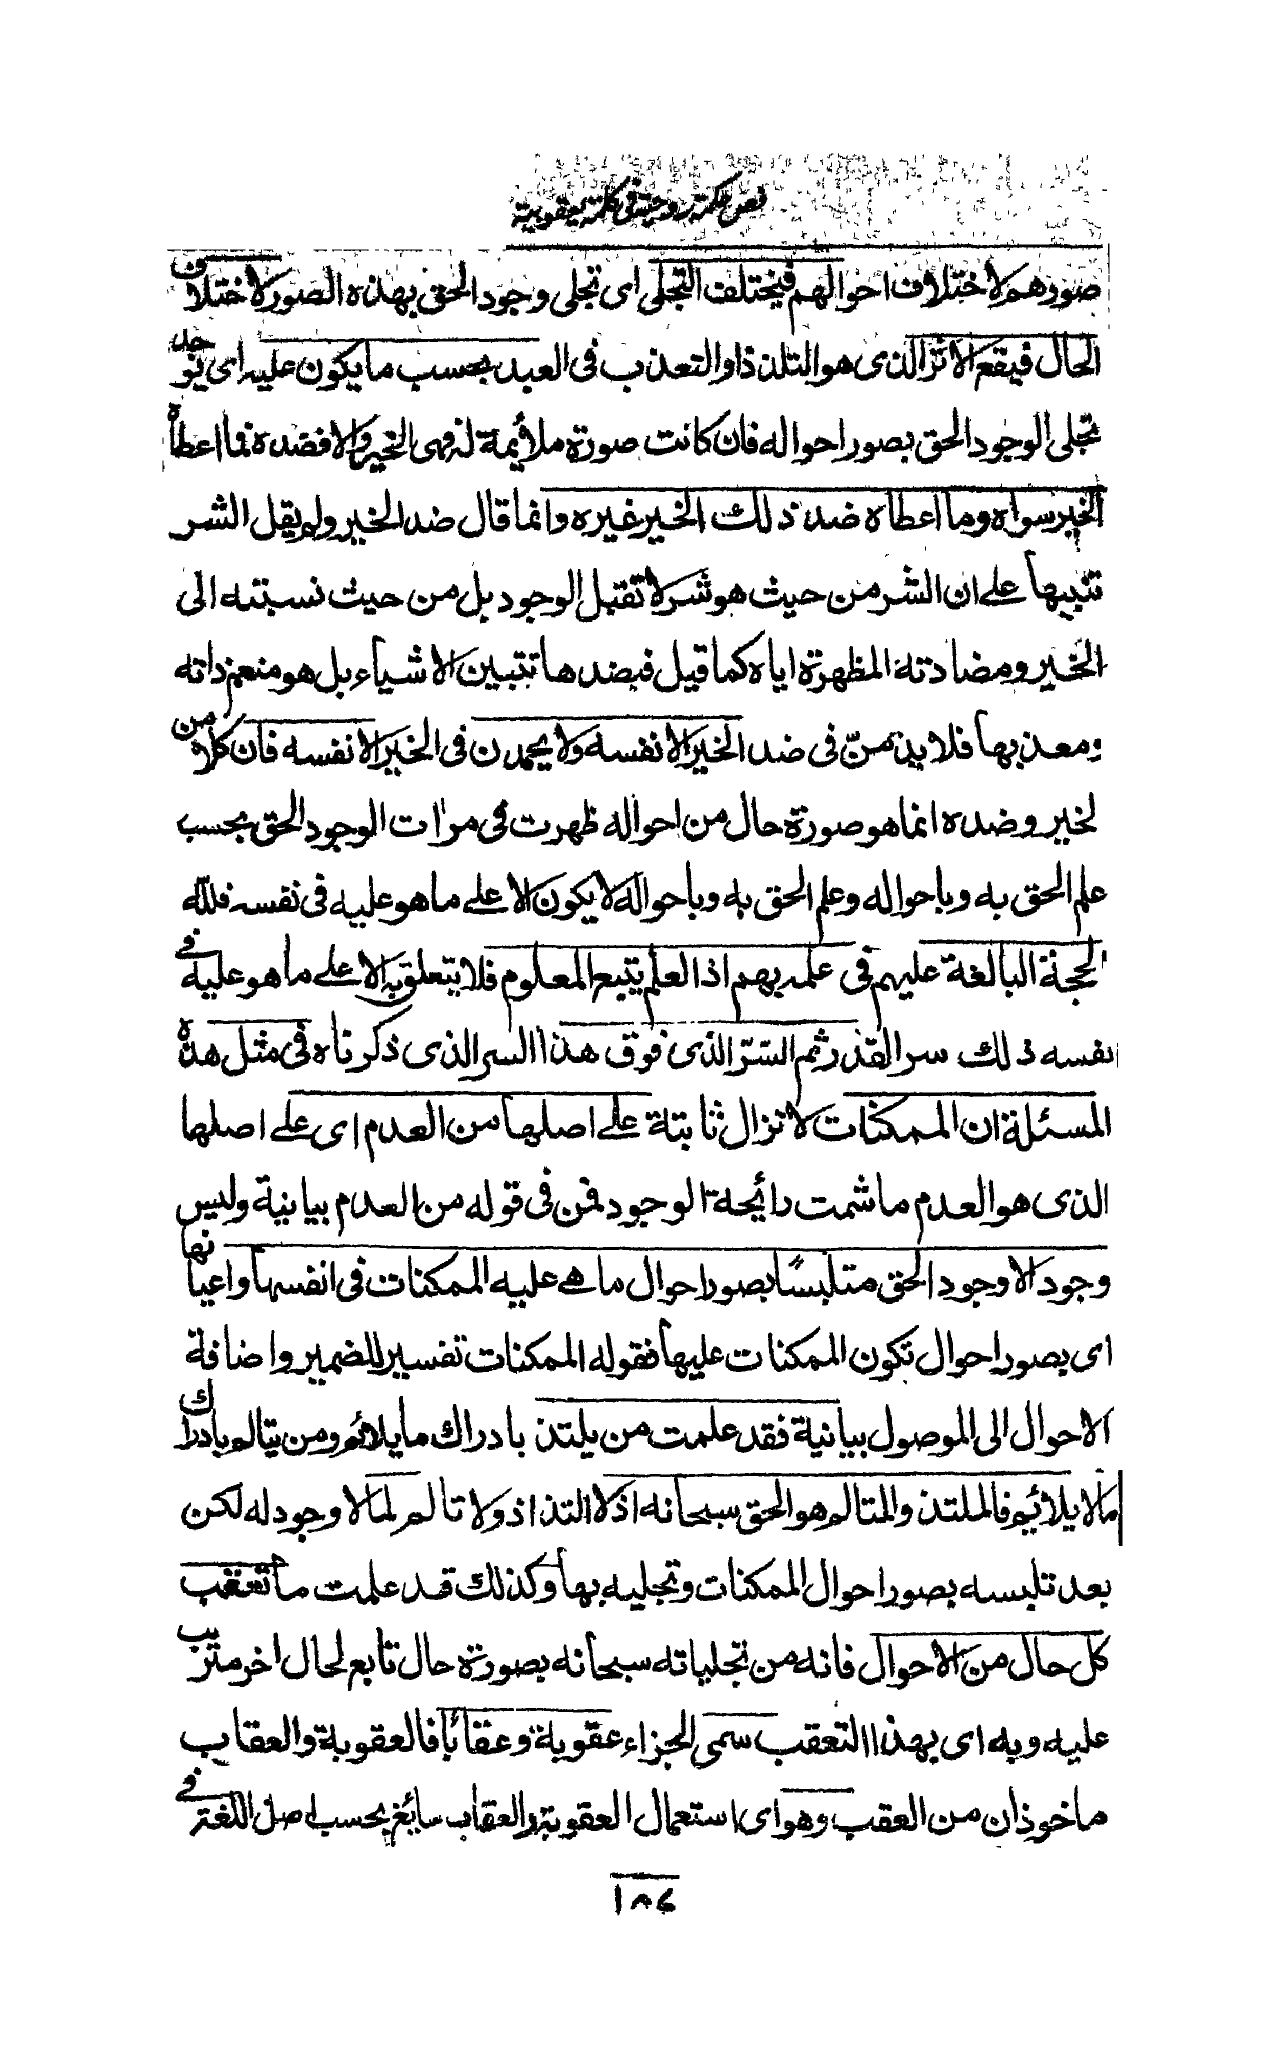 فص حكمة روحية في كلمة يعقوبية
صورهم لاختلاف احوالهم فيختلف التجلي اى تجلى وجود الحق بهذه الصور لاختلاف
الحال فيقع الاثر الذى هو التلذذ او التعذب فى العبد بحسب ما يكون عليه اى يوجد
تجلى الوجود الحق بصور احواله فان كانت صورة ملائمة له فهى الخير والا فضده فما اعطاه
الخير سواه وما اعطاه ضد ذلك الخير غيره وانما قال ضد الخير ولم يقل الشر
تنبيها على ان الشر من حيث هو شر لا تقبل الوجود بل من حيث نسبته الى
الخير ومضادته المظهرة اياه كما قيل فبضدها تتبين الاشياء بل هو منعم ذاته
ومعذبها فلا يذمنّ فى ضد الخير الا نفسه ولا يحمدن فى الخير الا نفسه فان كلا من
لخير وضده انما هو صورة حال من احواله ظهرت فى مرات الوجود الحق بحسب
علم الحق به وباحواله وعلم الحق به وباحواله لا يكون الا على ما هو عليه فى نفسه فللّه
الحجة البالغة عليهم فى علمه بهم اذ العلم يتبع المعلوم فلا يتعلق به الا على ما هو عليه فى
نفسه ذلك سر القدر ثم السّرّ الذى فوق هذا السر الذى ذكرناه فى مثل هذه
المسئلة ان الممكنات لا تزال ثابتة على اصلها من العدم اى على اصلها
الذى هو العدم ما شمت رائحة الوجود فمن فى قوله من العدم بيانية وليس
وجود الا وجود الحق متلبسًا بصور احوال ما هى عليه الممكنات فى انفسها واعيانها
اى بصور احوال تكون الممكنات عليها فقوله الممكنات تفسير للضمير واضافة
الاحوال الى الموصول بيانية فقد علمت من يلتذ بادراك ما يلائم ومن يتالم بادراك
ما لا يلائيم فالملتذ والمتالم هو الحق سبحانه اذ لا التذاذ ولا تالم لما لا وجود له لكن
بعد تلبسه بصور احوال الممكنات وتجليه بها وكذلك قد علمت ما تعقب
كل حال من الاحوال فانه من تجلياته سبحانه بصورة حال تابع لحال اخر مترتب
عليه وبه اى بهذا التعقب سمى الجزاء عقوبة وعقابا فالعقوبة والعقاب
ماخوذان من العقب وهو اى استعمال العقوبة والعقاب سايغ بحسب اصل اللغة فى
۱۸۶